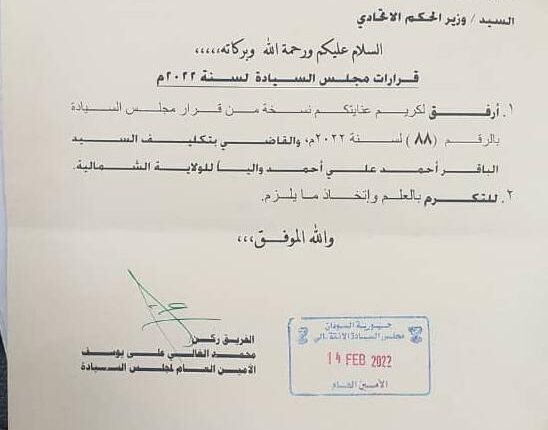 السيد / وزير الحكم الاتحادي
السلام عليكم ورحمة الله وبركاته،،،،،
قرارات مجلس السيادة لسنة ٢٠٢٢م
١. أرفق لكريم عنايتكم نسخة من قرار مجلس السيادة
بالرقم (٨٨) لسنة ٢٠٢٢م، والقاضي بتكليف السيد
الباقر أحمد علي أحمد والياً للولاية الشمالية.
٢. للتكرم بالعلم وإتخاذ ما يلزم.
والله الموفق،،،
الفريق ركن
محمد الغالي على يوسف
الأمين العام لمجلس السيادة
جمهورية السودان
مجلس السيادة الانتقالي
14 FEB 2022
الأمين العام